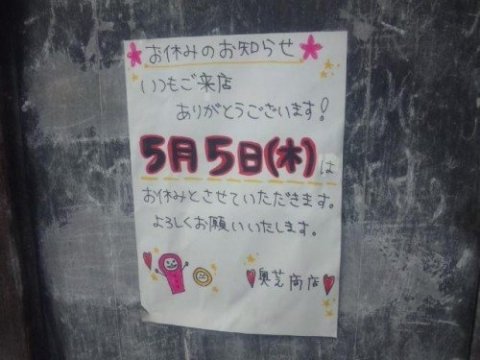 お休みのお知らせ
いつもご来店
ありがとうございます!
5月5日(木)は
お休みとさせていただきます。
よろしくお願いいたします。
奥芝商店